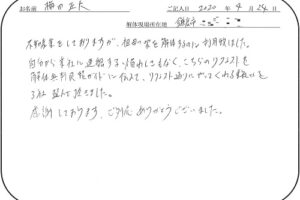 お名前 梅田正人 ご記入日 2020年 9月 24日
解体現場所在地 鎌倉市
不動産業をしておりますが、祖母の家を解体するのに利用致しました。
自分から業社に連絡する煩わしさもなく、こちらのリクエストを
解体無料見積ガイドに伝えて、リクエスト通りにやってくれる業社を
3社選んで頂きました。
感謝しております。ご対応ありがとうございました。